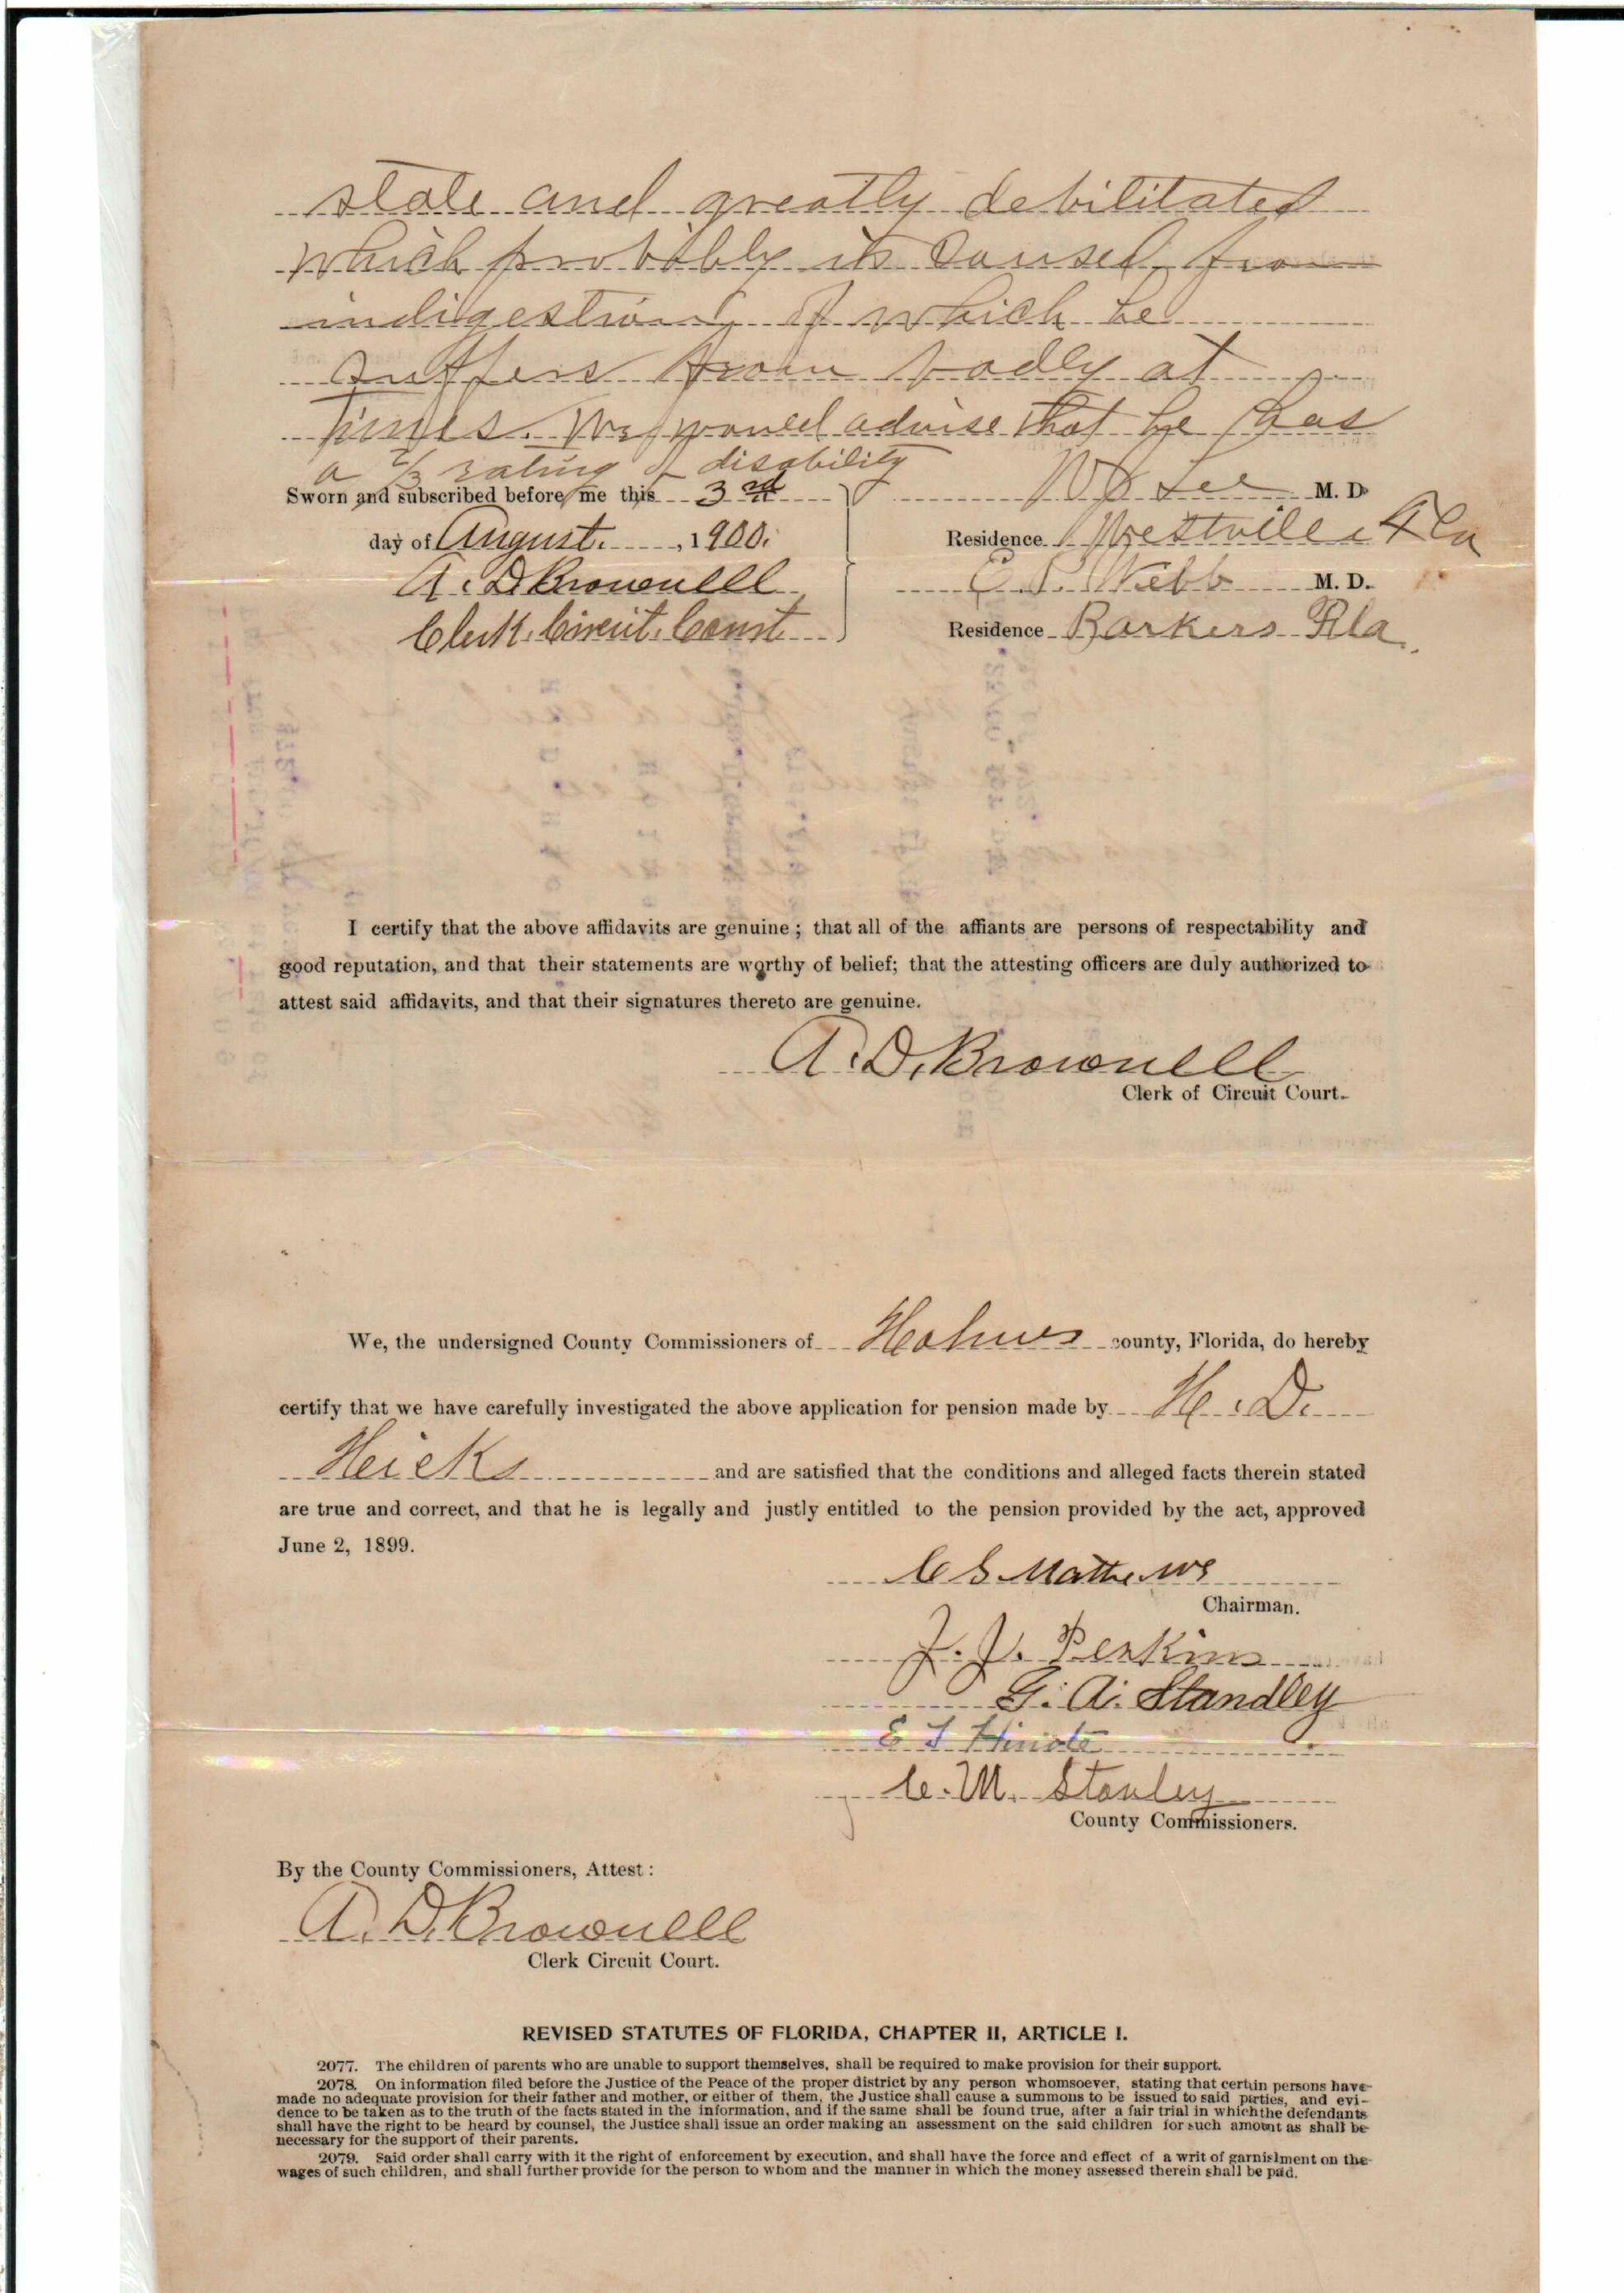 state and greatly debilitated
which probably is caused from
indigestion of which he
suffers from badly at
times. We would advise that he has
a 2/3 rating of disability
Sworn and subscribed before me this 3rd
day of August, 1900.
A. D. Brownell
Clerk Circuit Court
W J Lee M. D.
Residence Westville Fla
Webb M. D.
Residence Barkers Fla.
I certify that the above affidavits are genuine; that all of the affiants are persons of respectability and
good reputation, and that their statements are worthy of belief; that the attesting officers are duly authorized to
attest said affidavits, and that their signatures thereto are genuine.
A. D. Brownell
Clerk of Circuit Court.
We, the undersigned County Commissioners of Holmes county, Florida, do hereby
certify that we have carefully investigated the above application for pension made by H. D.
Heicks and are satisfied that the conditions and alleged facts therein stated
are true and correct, and that he is legally and justly entitled to the pension provided by the act, approved
June 2, 1899.
C S Mathews
Chairman.
J. J. Perkins
G. A. Standley
E T Hinote
C. M. Stanley
County Commissioners.
By the County Commissioners, Attest:
A. D. Brownell
Clerk Circuit Court.
REVISED STATUTES OF FLORIDA, CHAPTER II, ARTICLE I.
2077. The children of parents who are unable to support themselves, shall be required to make provision for their support.
2078. On information filed before the Justice of the Peace of the proper district by any person whomsoever, stating that certain persons have
made no adequate provision for their father and mother, or either of them, the Justice shall cause a summons to be issued to said parties, and evi-
dence to be taken as to the truth of the facts stated in the information, and if the same shall be found true, after a fair trial in which the defendants
shall have the right to be heard by counsel, the Justice shall issue an order making an assessment on the said children for such amount as shall be
necessary for the support of their parents.
2079. Said order shall carry with it the right of enforcement by execution, and shall have the force and effect of a writ of garnishment on the
wages of such children, and shall further provide for the person to whom and the manner in which the money assessed therein shall be paid.